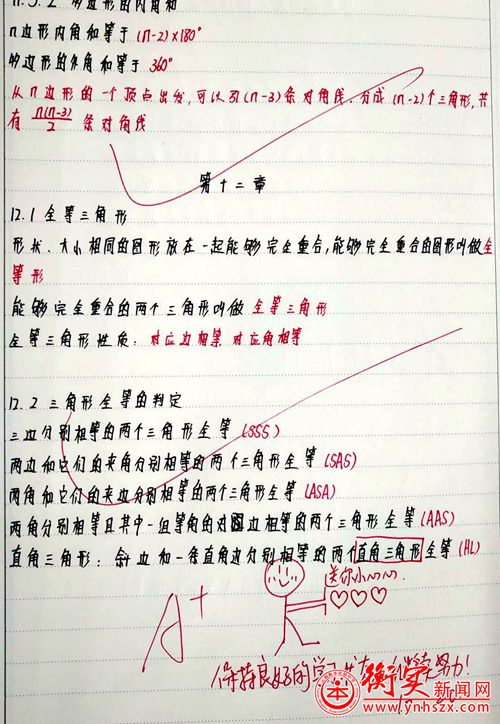 11.3.2 多边形的内角和
n边形内角和等于(n-2)×180°
多边形的外角和等于 360°
从n边形的一个顶点出发,可以引(n-3)条对角线,分成(n-2)个三角形,共
有 n(n-3)/2 条对角线
第十二章
12.1 全等三角形
形状、大小相同的图形放在一起能够完全重合,能够完全重合的图形叫做全
等形
能够完全重合的两个三角形叫做 全等三角形
全等三角形性质:对应边相等 对应角相等
12.2 三角形全等的判定
三边分别相等的两个三角形全等(SSS)
两边和它们的夹角分别相等的两个三角形全等(SAS)
两角和它们的夹边分别相等的两个三角形全等(ASA)
两角分别相等且其中一组等角的对边相等的两个三角形全等(AAS)
直角三角形:斜边和一条直角边分别相等的两个直角三角形全等(HL)
送你小心心
A+
保持良好的学习 继续努力!
衡实新闻网
www.ynhszx.com